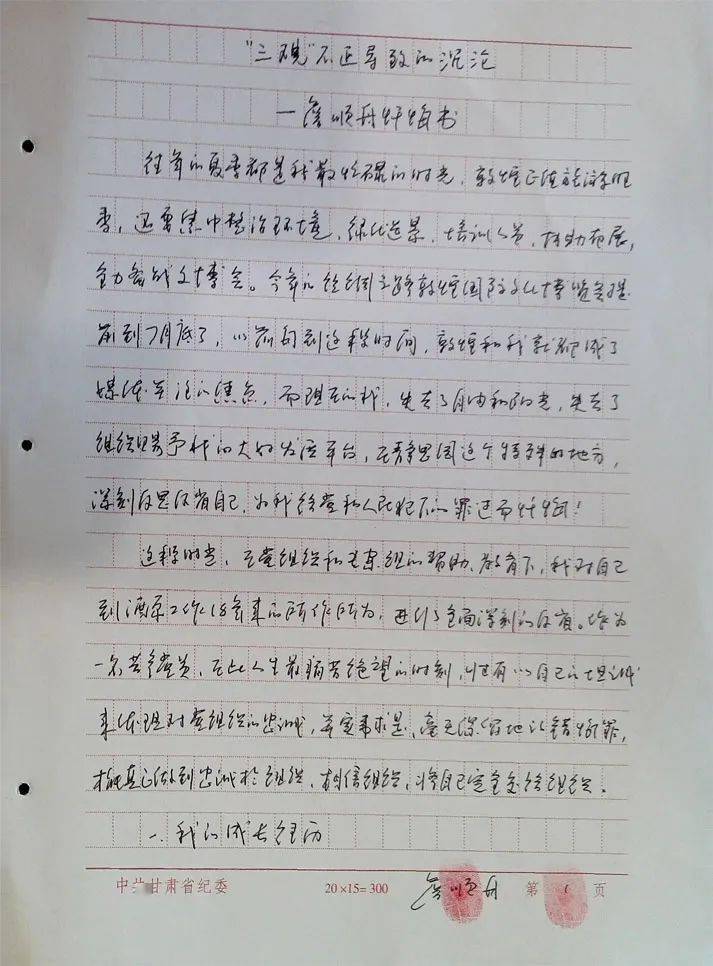 "三观"不正导致的沉沦
—詹顺舟忏悔书
往年的夏季都是我最忙碌的时光，敦煌正值旅游旺
季，还要集中整治环境，绿化造景，培训人员，布展，
全力备战文博会。今年的丝绸之路敦煌国际文化博览会提
前到7月底了，以前每到这段时间，敦煌和我就都成了
媒体关注的焦点，而现在的我，失去了自由和阳光，失去了
组织赐予我的大好发展平台，在静思园这个特殊的地方，
深刻反思反省自己，为我给党和人民犯下的罪过而忏悔！
这段时光，在党组织和专案组的帮助、教育下，我对自己
到酒泉工作18年来的所作所为，进行了全面深刻的反省。作为
一名共产党员，在此人生最痛苦绝望的时刻，只有以自己的坦诚
来体现对党组织的忠诚，实事求是、毫无保留地认错悔罪，
才能真正做到忠诚于组织、相信组织，并将自己完全交给组织。
一、我的成长经历
中共甘肃省纪委 20×15=300 詹顺舟 第 1 页